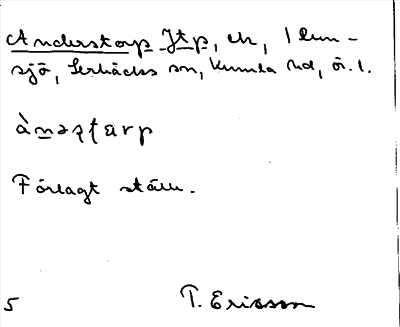 Anderstorp Jtp, ek, 1 km –
sjö, Lerbäcks sn, Kumla hd, ör. l.
ànəʂʈarp
Förlagt ställe.
5 T. Ericsson